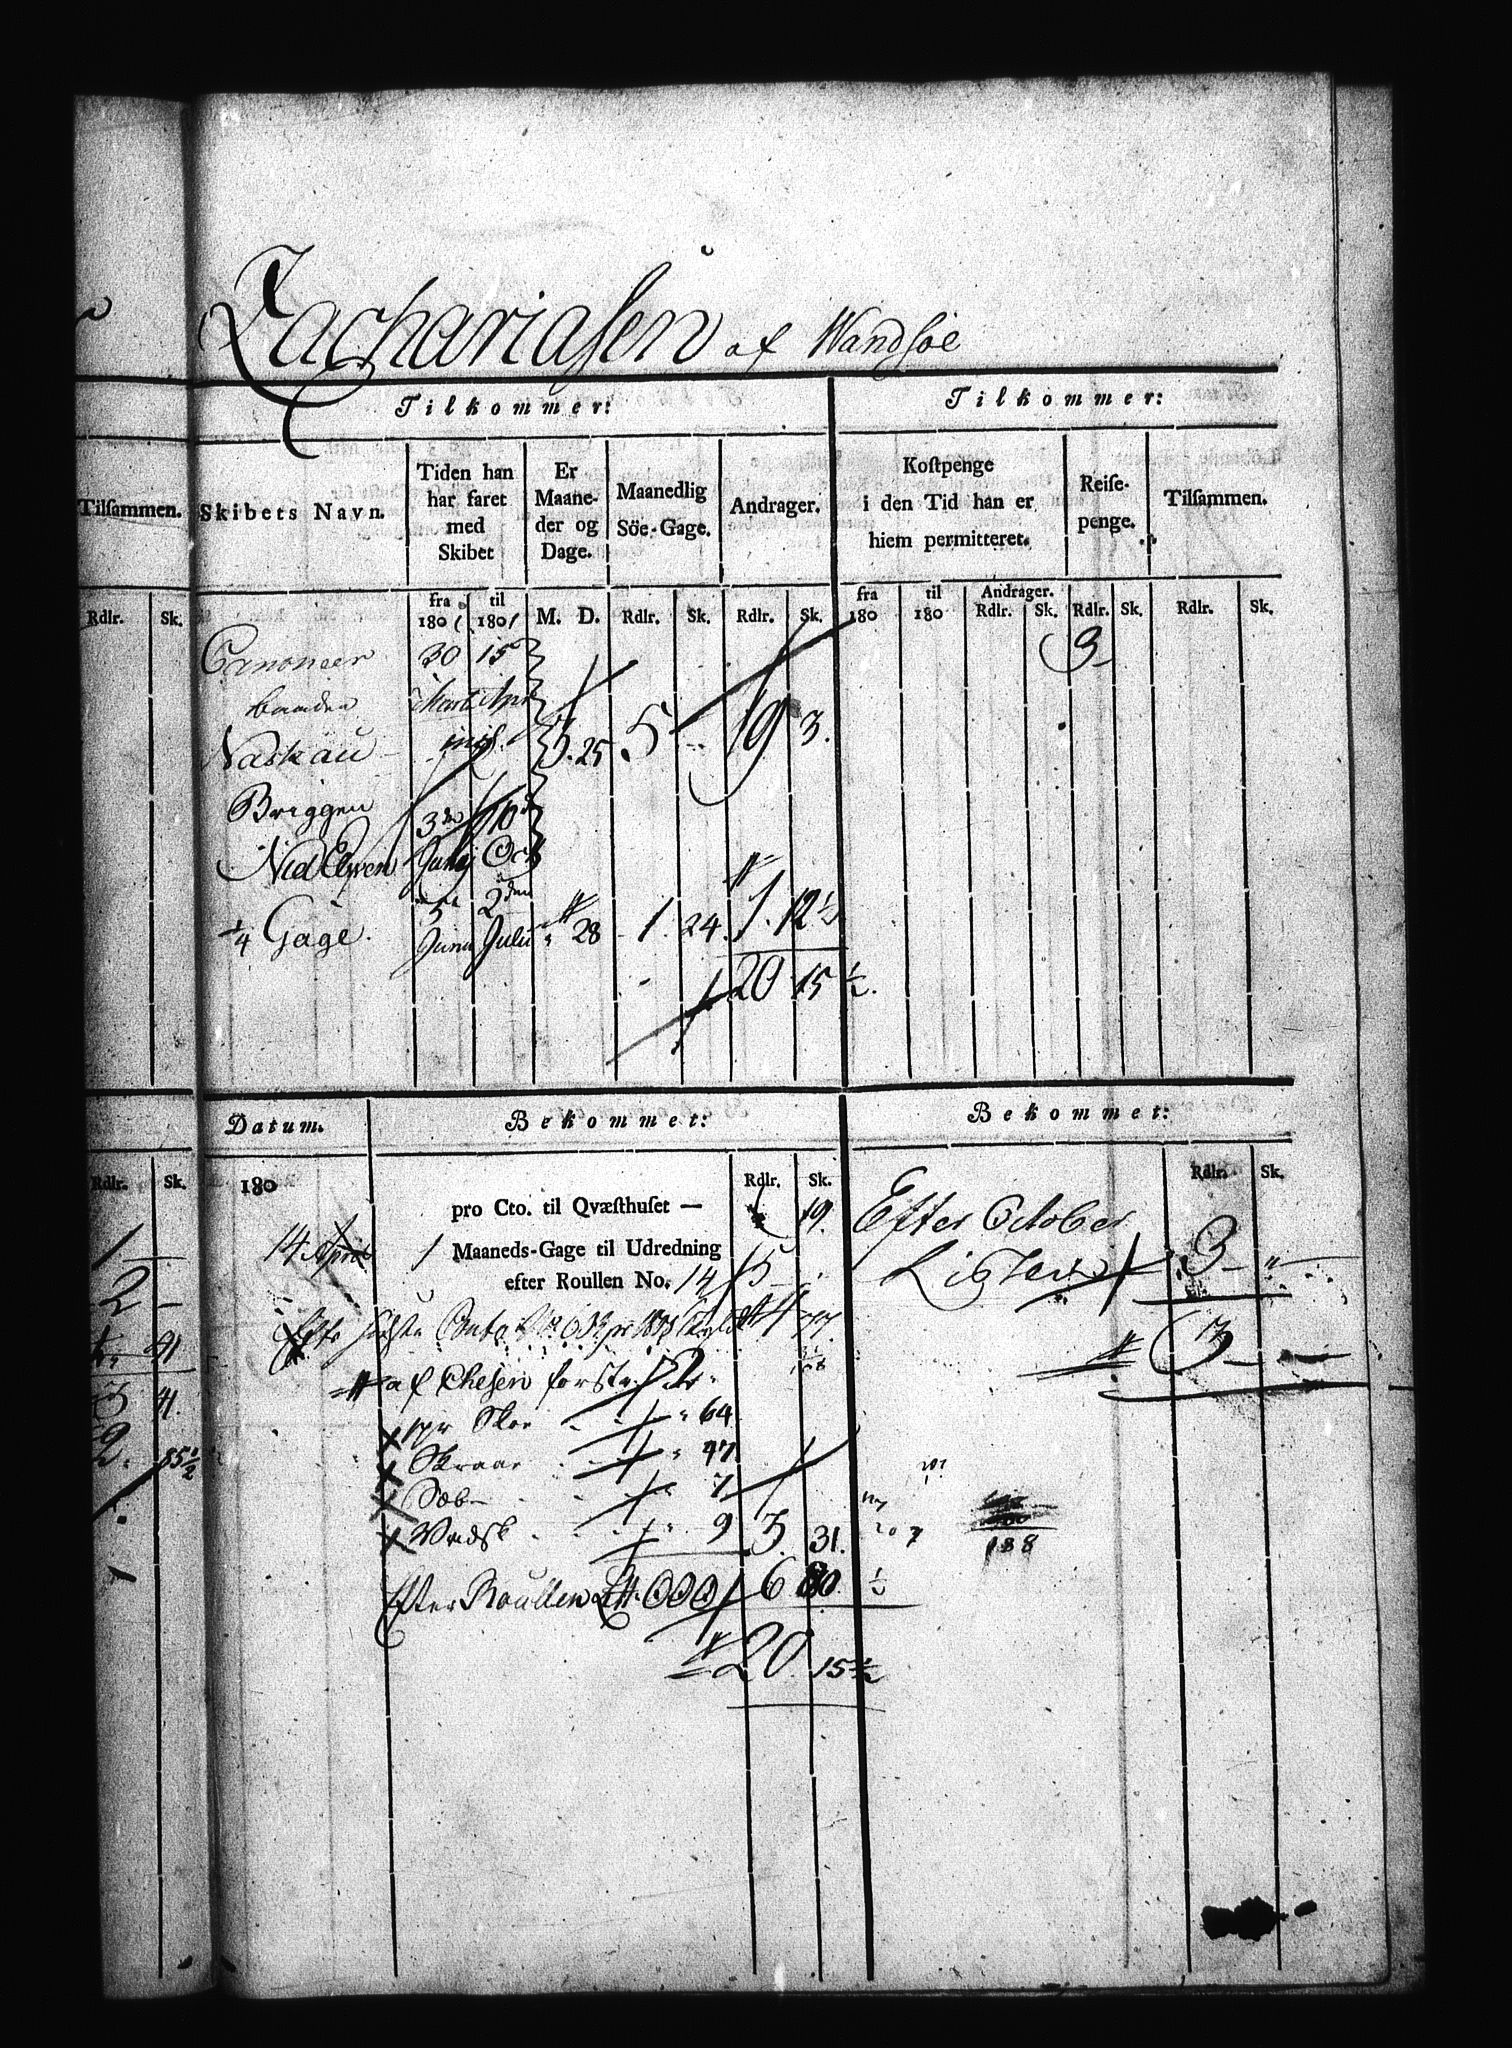 Zachariasen af Wandsöe
Tilkommer: Tilkommer:
Tilsammen. Skibets Navn. Tiden han har faret med Skibet Er Maaneder og Dage. Maanedlig Söe-Gage. Andrager. Kostpenge i den Tid han er hiem permitteret. Reise-penge. Tilsammen.
Rdlr. Sk. fra 1801 til 1801 M. D. Rdlr. Sk. Rdlr. Sk. fra 180 til 180 Andrager. Rdlr. Sk. Rdlr. Sk. Rdlr. Sk.
Canoneer 30 15 3
baaden Marti Apr
Naskau 3. 25 5 19 3.
Briggen 3 10
Nid Elven Juny Oct
1/4 Gage. 5 Juni 2den Julii 28 1. 24. 1. 12 1/2
20 15 1/2.
Datum. Bekommet: Bekommet:
Rdlr. Sk. 180 Rdlr. Sk. Rdlr. Sk.
pro Cto. til Qvæsthuset — 19. Efter October
14 April 1 Maaneds-Gage til Udredning 5 Listen 3
efter Roullen No. 14
3
af Chesen forste 2
1 pr Skoe 64
Skraae 47
Sæbe 7
9 3. 31.
188
Efter Roullen Litt. 6 80 1/2
20. 15 1/2